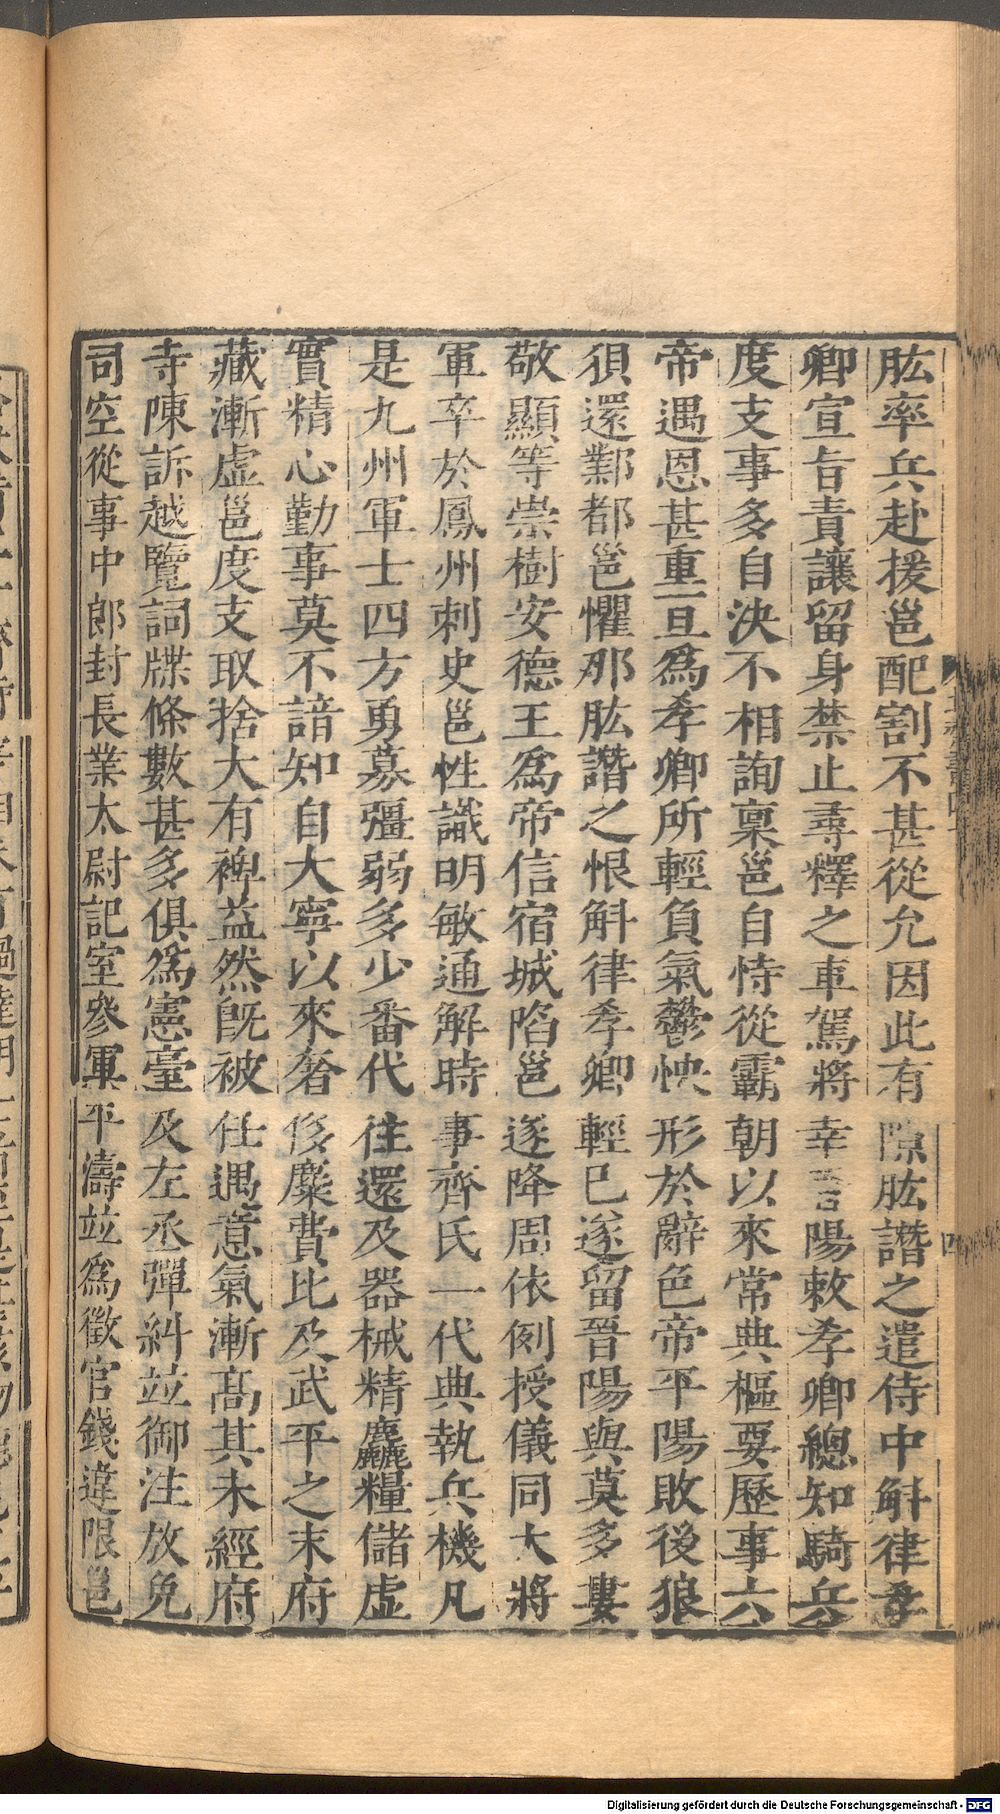 肱率兵赴援邕配割不甚從允因此有隙肱譖之遣侍中斛律孝
卿宣旨責讓留身禁止尋釋之車駕將幸晉陽敕孝卿總知騎兵
度支事多自決不相詢稟邕自恃從霸朝以來常典樞要歷事六
帝遇恩甚重一旦爲孝卿所輕負氣鬱怏形於辭色帝平陽敗後狼
狽還鄴都邕懼那肱譖之恨斛律孝卿輕己遂留晉陽與莫多婁
敬顯等崇樹安德王爲帝信宿城陷邕遂降周依例授儀同大將
軍卒於鳳州刺史邕性識明敏通解時事齊氏一代典執兵機凡
是九州軍士四方勇募彊弱多少番代往還及器械精麤糧儲虛
實精心勤事莫不諳知自大寧以來奢侈糜費比及武平之末府
藏漸虛邕度支取捨大有裨益然旣被任遇意氣漸髙其未經府
寺陳訴越覽詞牒條數甚多俱爲憲臺及左丞彈糾竝御注放免
司空從事中郎封長業太尉記室參軍平濤竝爲徵官錢違限邕
Digitalisierung gefördert durch die Deutsche Forschungsgemeinschaft - DFG